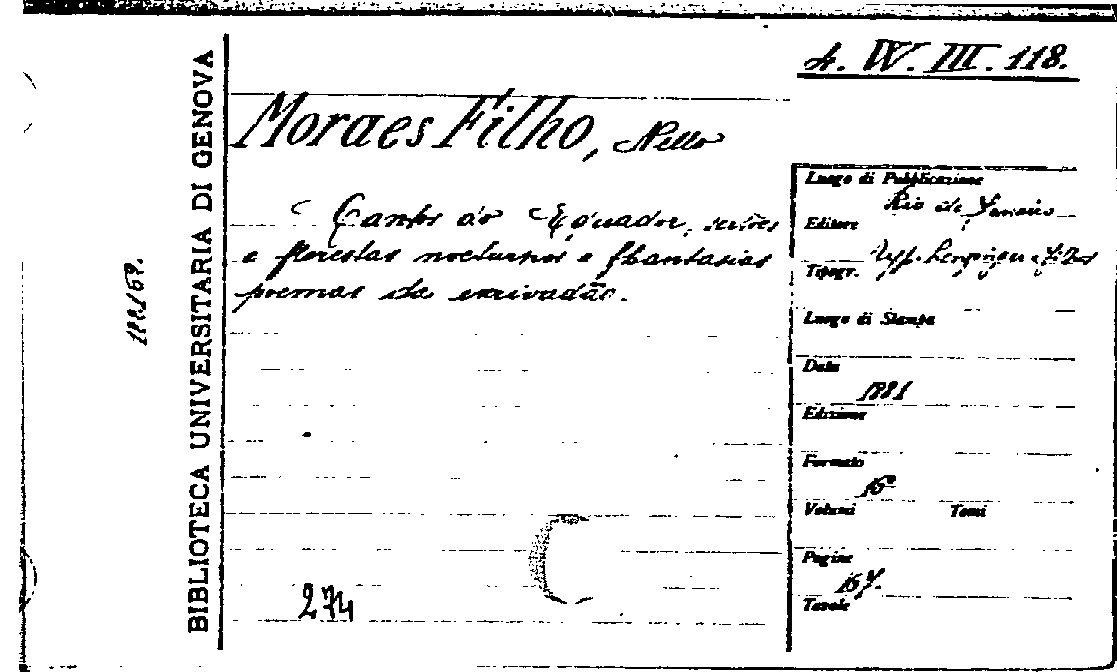 4. W. III. 118.
Moraes Filho, Mello
BIBLIOTECA UNIVERSITARIA DI GENOVA
Cantos do Equador, sertões
e florestas nocturnos e phantasias
poemas da escravidão.
274
Luogo di Pubblicazione
Rio de Janeiro
Editore
Typ. Leuzinger & Filhos
Tipogr.
Luogo di Stampa
Data
1881
Edizione
Formato
16º
Volumi Tomi
Pagine
Tavole